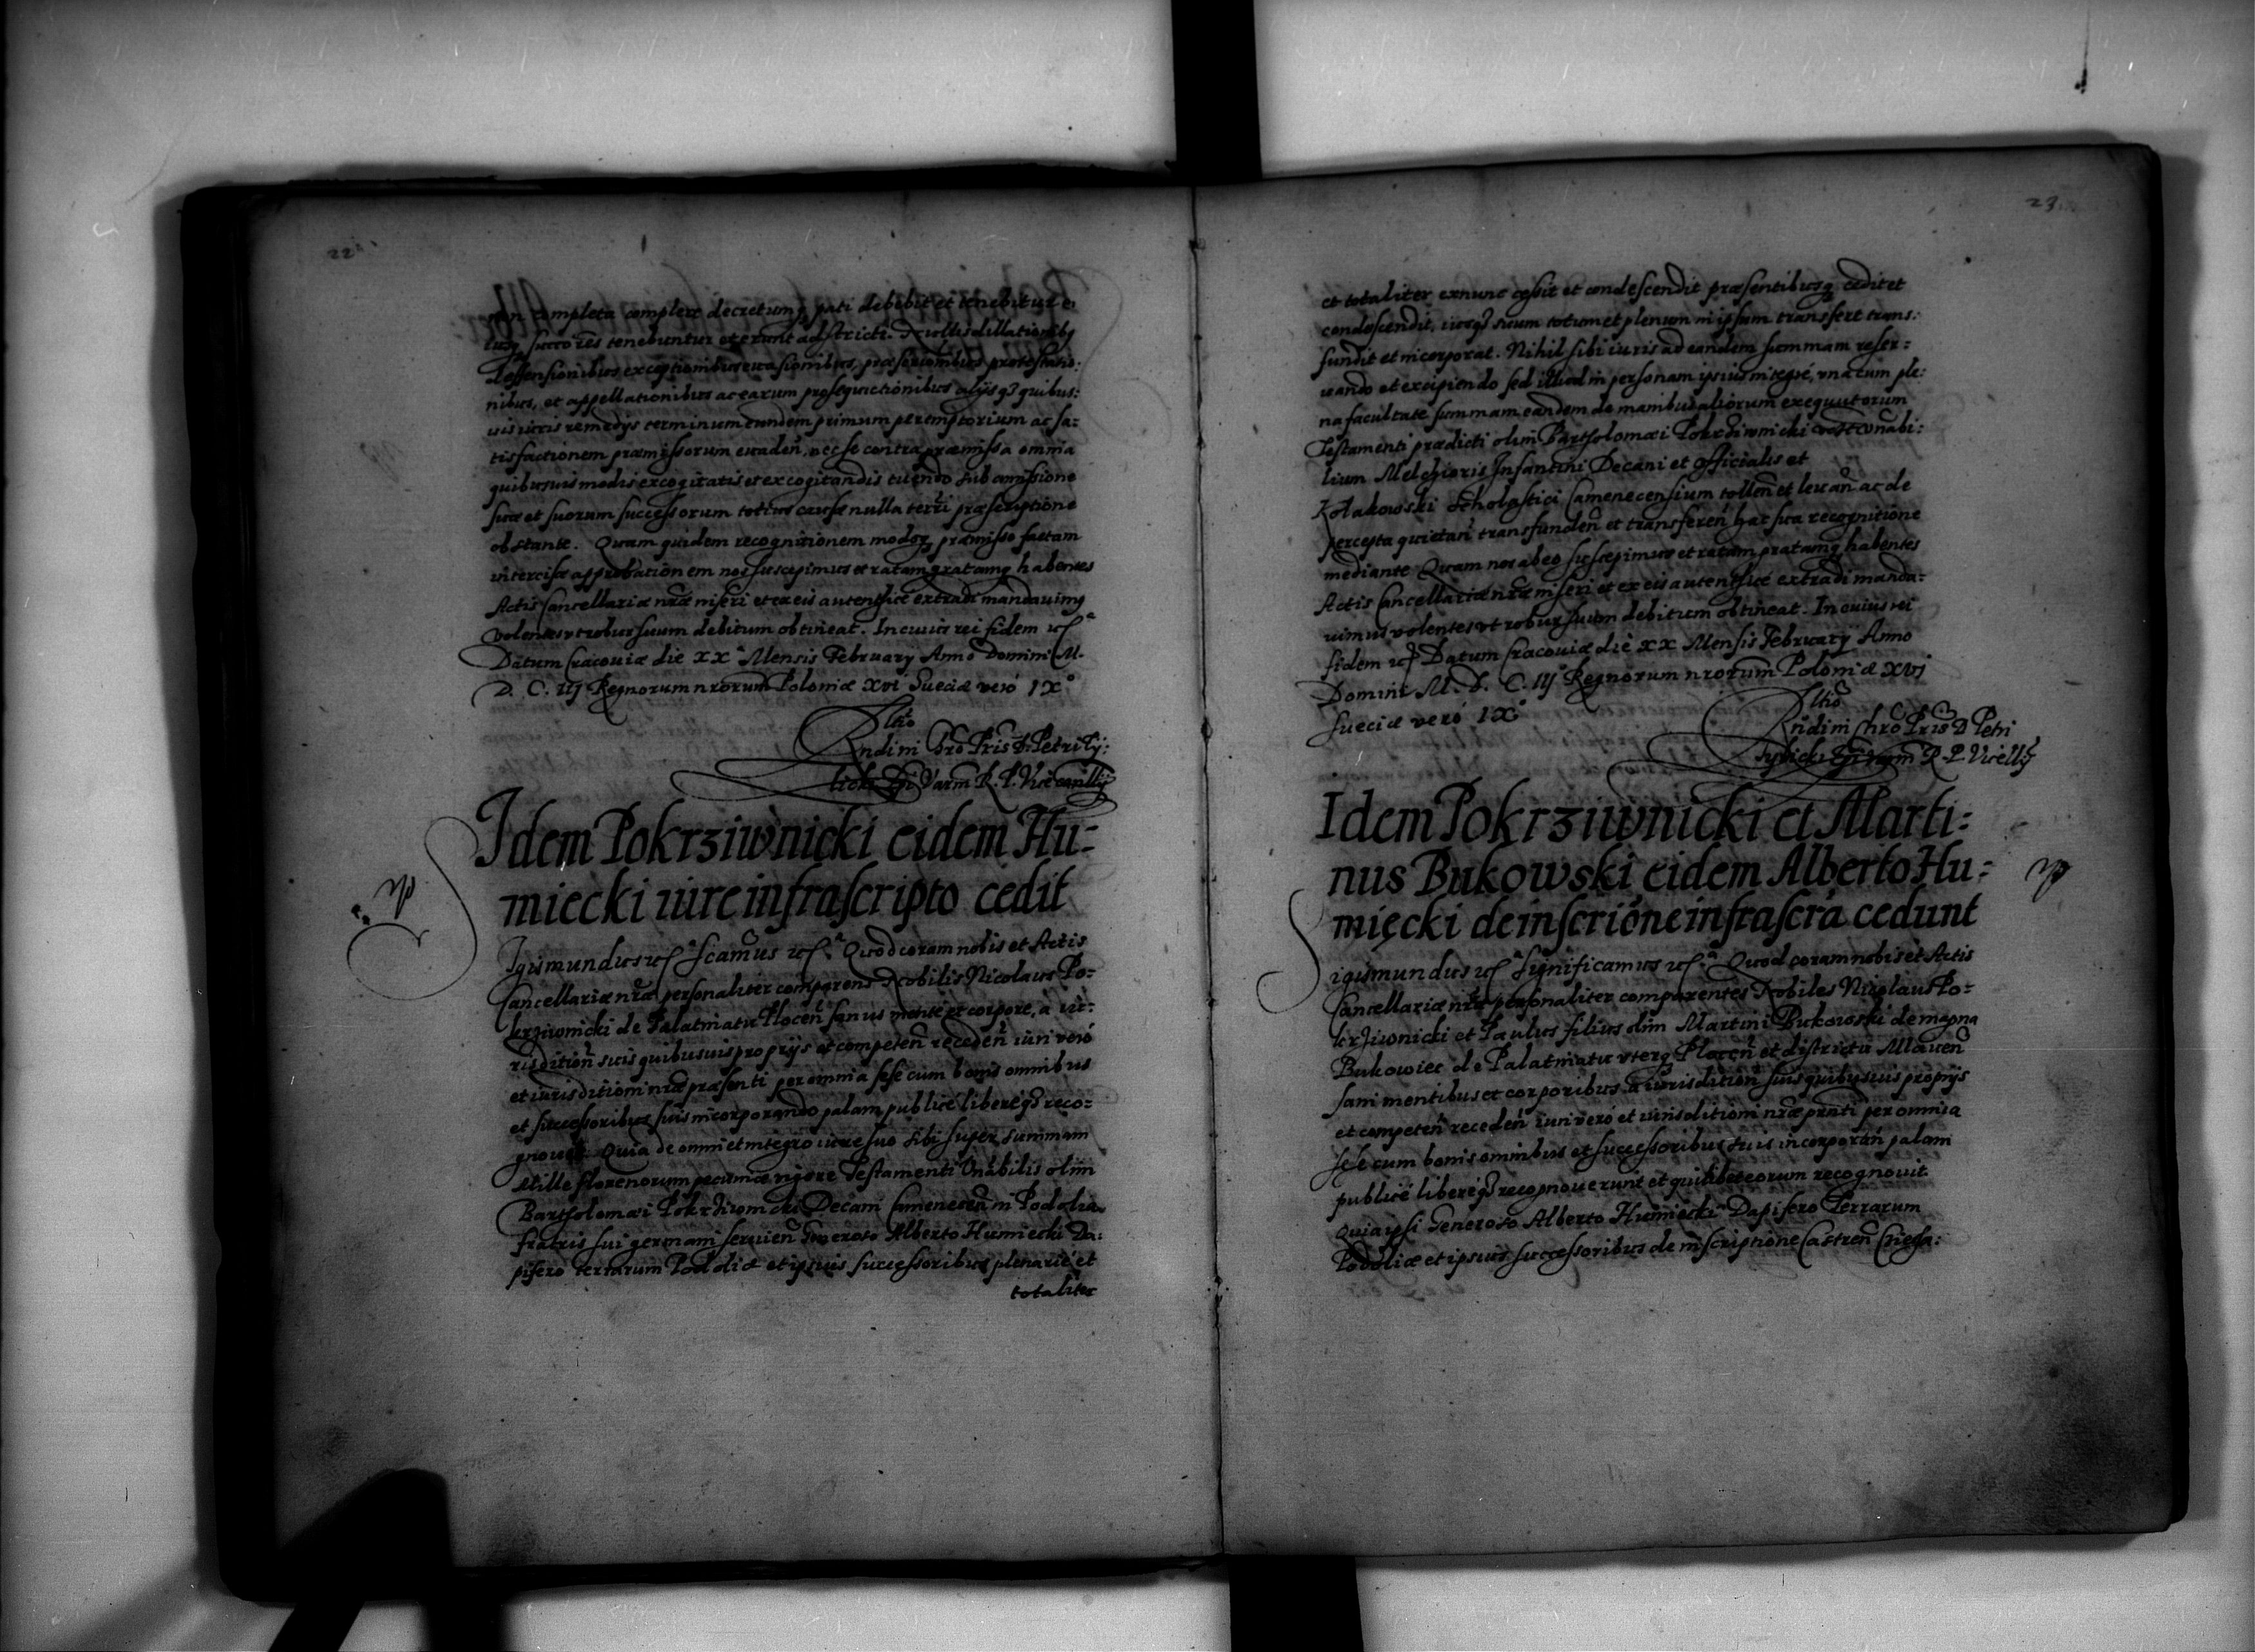 22
non completa complere decretumq pati debebit et tenebitur ei
usq succores tenebuntur et erunt adstricti. Nullis dillationibq
deffensionibus exceptionibus evasionibus, præscriptionibus protestatio:
nibus, et appellationibus ac earum prosequutionibus alijsq3 quibus:
uis iuris remedijs terminum eundem primum peremptorium ac sa:
tisfactionem præmissorum euadeñ, nec se contra præmissa omnia
quibusuis modis excogitatis et excogitandis tuendo sub amissione
suæ et suorum successorum totius causæ nulla terři præscriptione
obstante. Quam quidem recognitionem modoq præmisso factam
intercisæ approbationem nos suscepimus et ratam gratamq habentes
Actis Cancellariæ nræ inseri et ex eis autentice extradi mandauimq
volentes vt robur suum debitum obtineat. In cuius rei fidem
Datum Cracouiæ die XX Mensis February Anno Domini M.
D. C. IIJ Regnorum nrorum Poloniæ XVI Sueciæ vero IX°
Rndimi Chro Pris D. Petri Tÿ:
licki Epi Varm R. P. Vicecancllÿ
Idem Pokrziwnicki eidem Hu:
miecki iure infrascripto cedit
Igismundus Scamus Quod coram nobis et Actis
Cancellariæ nræ personaliter comparens Nobilis Nicolaus Po:
krziwnicki de Palatinatu Plocen̄ sanus mente et corpore, a iu:
risdition̄ suis quibusuis proprijs et competen̄ receden̄ iuri vero
et iurisditioni nræ præsenti per omnia sese cum bonis omnibus
et successoribus suis incorporando palam publice libereq3 reco:
gnouit Quia de omni et integro iure suo sibi super summam
Mille florenorum pecuniæ vigore Testamenti Vnābilis olim
Bartholomæi Pokrziwnicki Decani Camenecen̄ in Podolia
fratris sui germani seruien̄ Generoso Alberto Humiecki Da:
pifero terrarum Podoliæ et ipsius successoribus plenarie et
totaliter
23
et totaliter exnunc cessit et condescendit præsentibusq cedit et
condescendit, iusq3 suum totum et plenum in ipsum transfert trans:
fundit et incorporat. Nihil sibi iuris ad eandem summam reser:
uando et excipiendo sed illud in personam ipsius integre, vna cum ple:
na facultate summam eandem de manibus aliorum exequutorum
Testamenti prædicti olim Bartholomæi Pokrziwnicki vnābi:
lium Melchioris Infantini Decani et Officialis et
Kołakowski Scholastici Camenecensium tollen̄ et leuan̄ ac de
percepta quietan̄ transfunden̄ et transferen̄ hac sua recognitione
mediante Quam nos ab eo suscepimus et ratam gratamq habentes
Actis Cancellariæ nræ inseri et ex eis autentice extradi manda:
uimus volentes vt robur suum debitum obtineat. In cuius rei
fidem Datum Cracouiæ die XX Mensis February Anno
Domini M. D. C. IIJ Regnorum nrorum Poloniæ XVI
Sueciæ vero IX°
Rndimi Chro Pris D Petri
Tylicki Epi Varm R. P. Vicellÿ
Idem Pokrziwnicki et Marti:
nus Bukowski eidem Alberto Hu:
mięcki de inscrióne infrascrá cedunt
Sigismundus Significamus Quod coram nobis et Actis
Cancellariæ nræ personaliter comparentes Nobiles Nicolaus Po:
krziwnicki et Paulus filius olim Martini Bukowski de magna
Bukowiec de Palatinatu vterq Plocen̄ et districtu Mlauen̄
sani mentibus et corporibus a iurisdition̄ suis quibusuis proprijs
et competen̄ receden̄ iuri vero et iurisditioni nræ pnti per omnia
sese cum bonis omnibus et successoribus suis incorporan̄ palam
publice libereq3 recognouerunt et quilibet eorum recognouit
Quia ipsi Generoso Alberto Humiecki Dapifero Terrarum
Podoliæ et ipsius successoribus de inscriptione Castren̄